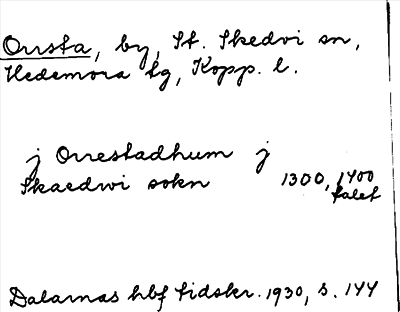 Orrsta, by, St. Skedvi sn,
Hedemora tg, Kopp. l.
j Orrestadhum j
Skaedwi sokn 1300, 1400
talet
Dalarnas hbf tidskr. 1930, s. 144